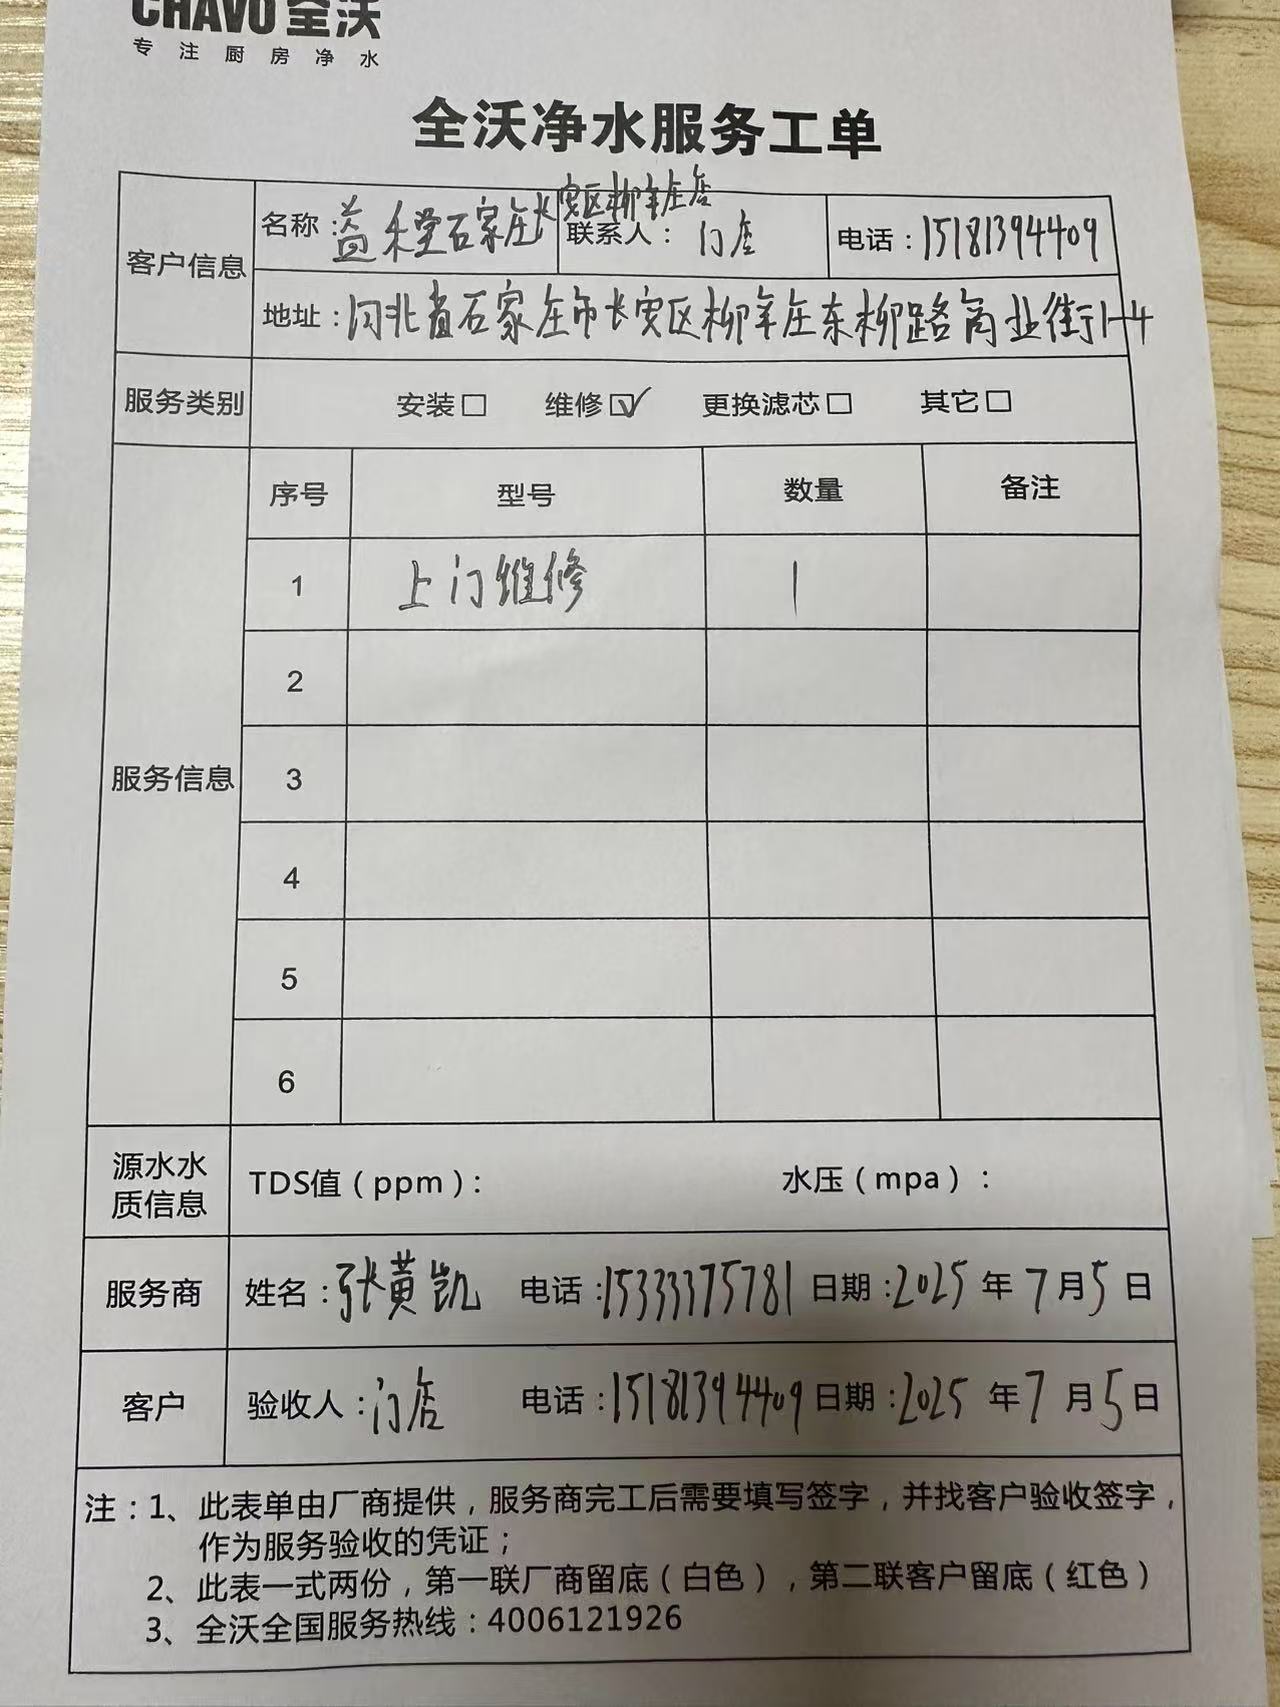 CHAVO 全沃
专注厨房净水
全沃净水服务工单
客户信息
名称：益禾堂石家庄长安区柳辛庄店
联系人：门店
电话：15181394409
地址：河北省石家庄市长安区柳辛庄东柳路商业街1-4
服务类别
安装□ 维修☑ 更换滤芯□ 其它□
服务信息
序号 型号 数量 备注
1 上门维修 1
2
3
4
5
6
源水水质信息
TDS值（ppm）： 水压（mpa）：
服务商 姓名：张黄凯 电话：15333375781 日期：2025年7月5日
客户 验收人：门店 电话：15181394409 日期：2025年7月5日
注：1、此表单由厂商提供，服务商完工后需要填写签字，并找客户验收签字，
作为服务验收的凭证；
2、此表一式两份，第一联厂商留底（白色），第二联客户留底（红色）
3、全沃全国服务热线：4006121926